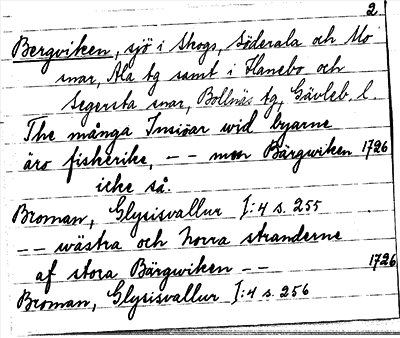 2.
Bergviken, sjö i Skogs, Söderala och Mo
snar, Ala tg samt i Hanebo och
Segersta snar, Bollnäs tg, Gävleb. l.
The många Insiöar wid byarne
äro fiskerike, -- men Bärgwiken 1726
icke så.
Broman, Glysisvallur I:4 s. 255
-- wästra och norra stranderne
af stora Bärgwiken -- 1726
Broman, Glysisvallur I:4 s. 256